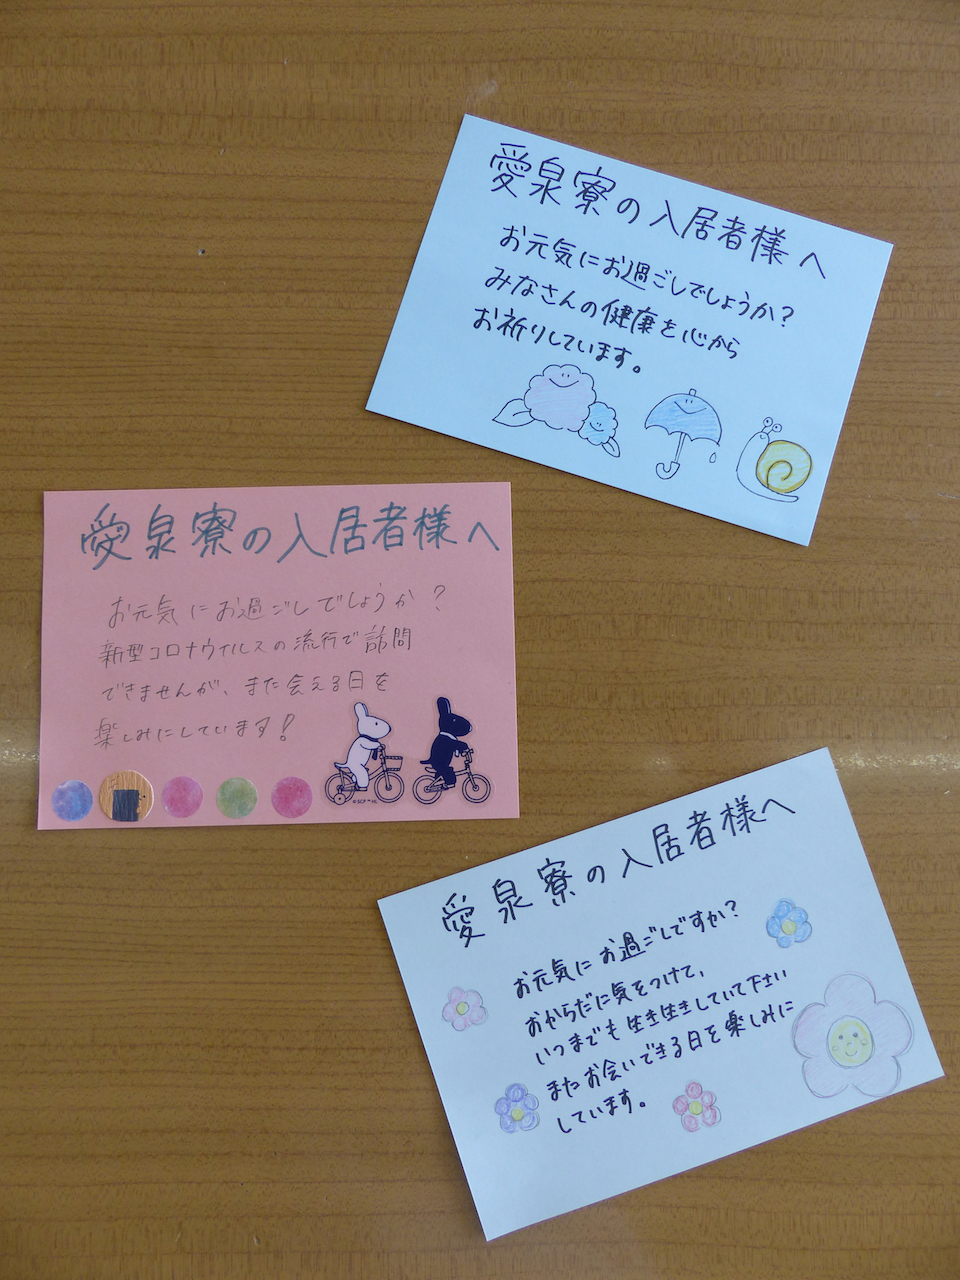 愛泉寮の入居者様へ
お元気にお過ごしでしょうか?
みなさんの健康を心から
お祈りしています。
愛泉寮の入居者様へ
お元気にお過ごしでしょうか?
新型コロナウイルスの流行で訪問
できませんが、また会える日を
楽しみにしています!
愛泉寮の入居者様へ
お元気にお過ごしですか?
おからだに気をつけて、
いつまでも生き生きしていて下さい
またお会いできる日を楽しみに
しています。